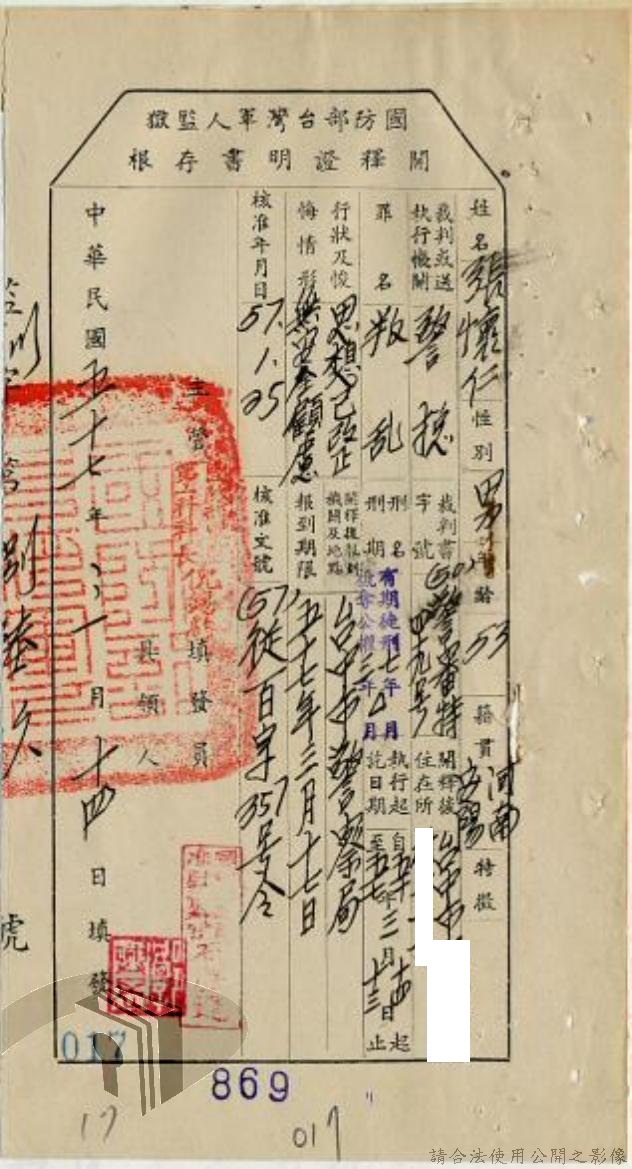 國防部台灣軍人監獄
開釋證明書存根
姓名 張懷仁 性別 男 年齡 53 籍貫 河南安陽 特徵
裁判或送執行機關 警總 裁判書字號 (50)警審特四九号 開釋後住在所 台中市
罪名 叛乱 刑名刑期 有期徒刑七年 月 褫奪公權三年 月 執行起訖日期 自五十年三月十四日起 至五七年三月十三日止
行狀及悛悔情形 思想已改正無安全顧慮 開釋後報到機關及地點 台中市警察局
報到期限 五十七年三月十七日
核准年月日 57.1.25 核准文號 (57)從百字357号令
主管
填發員
具領人
中華民國五十七年三月十四日填發
號
017
869
17
017
請合法使用公開之影像